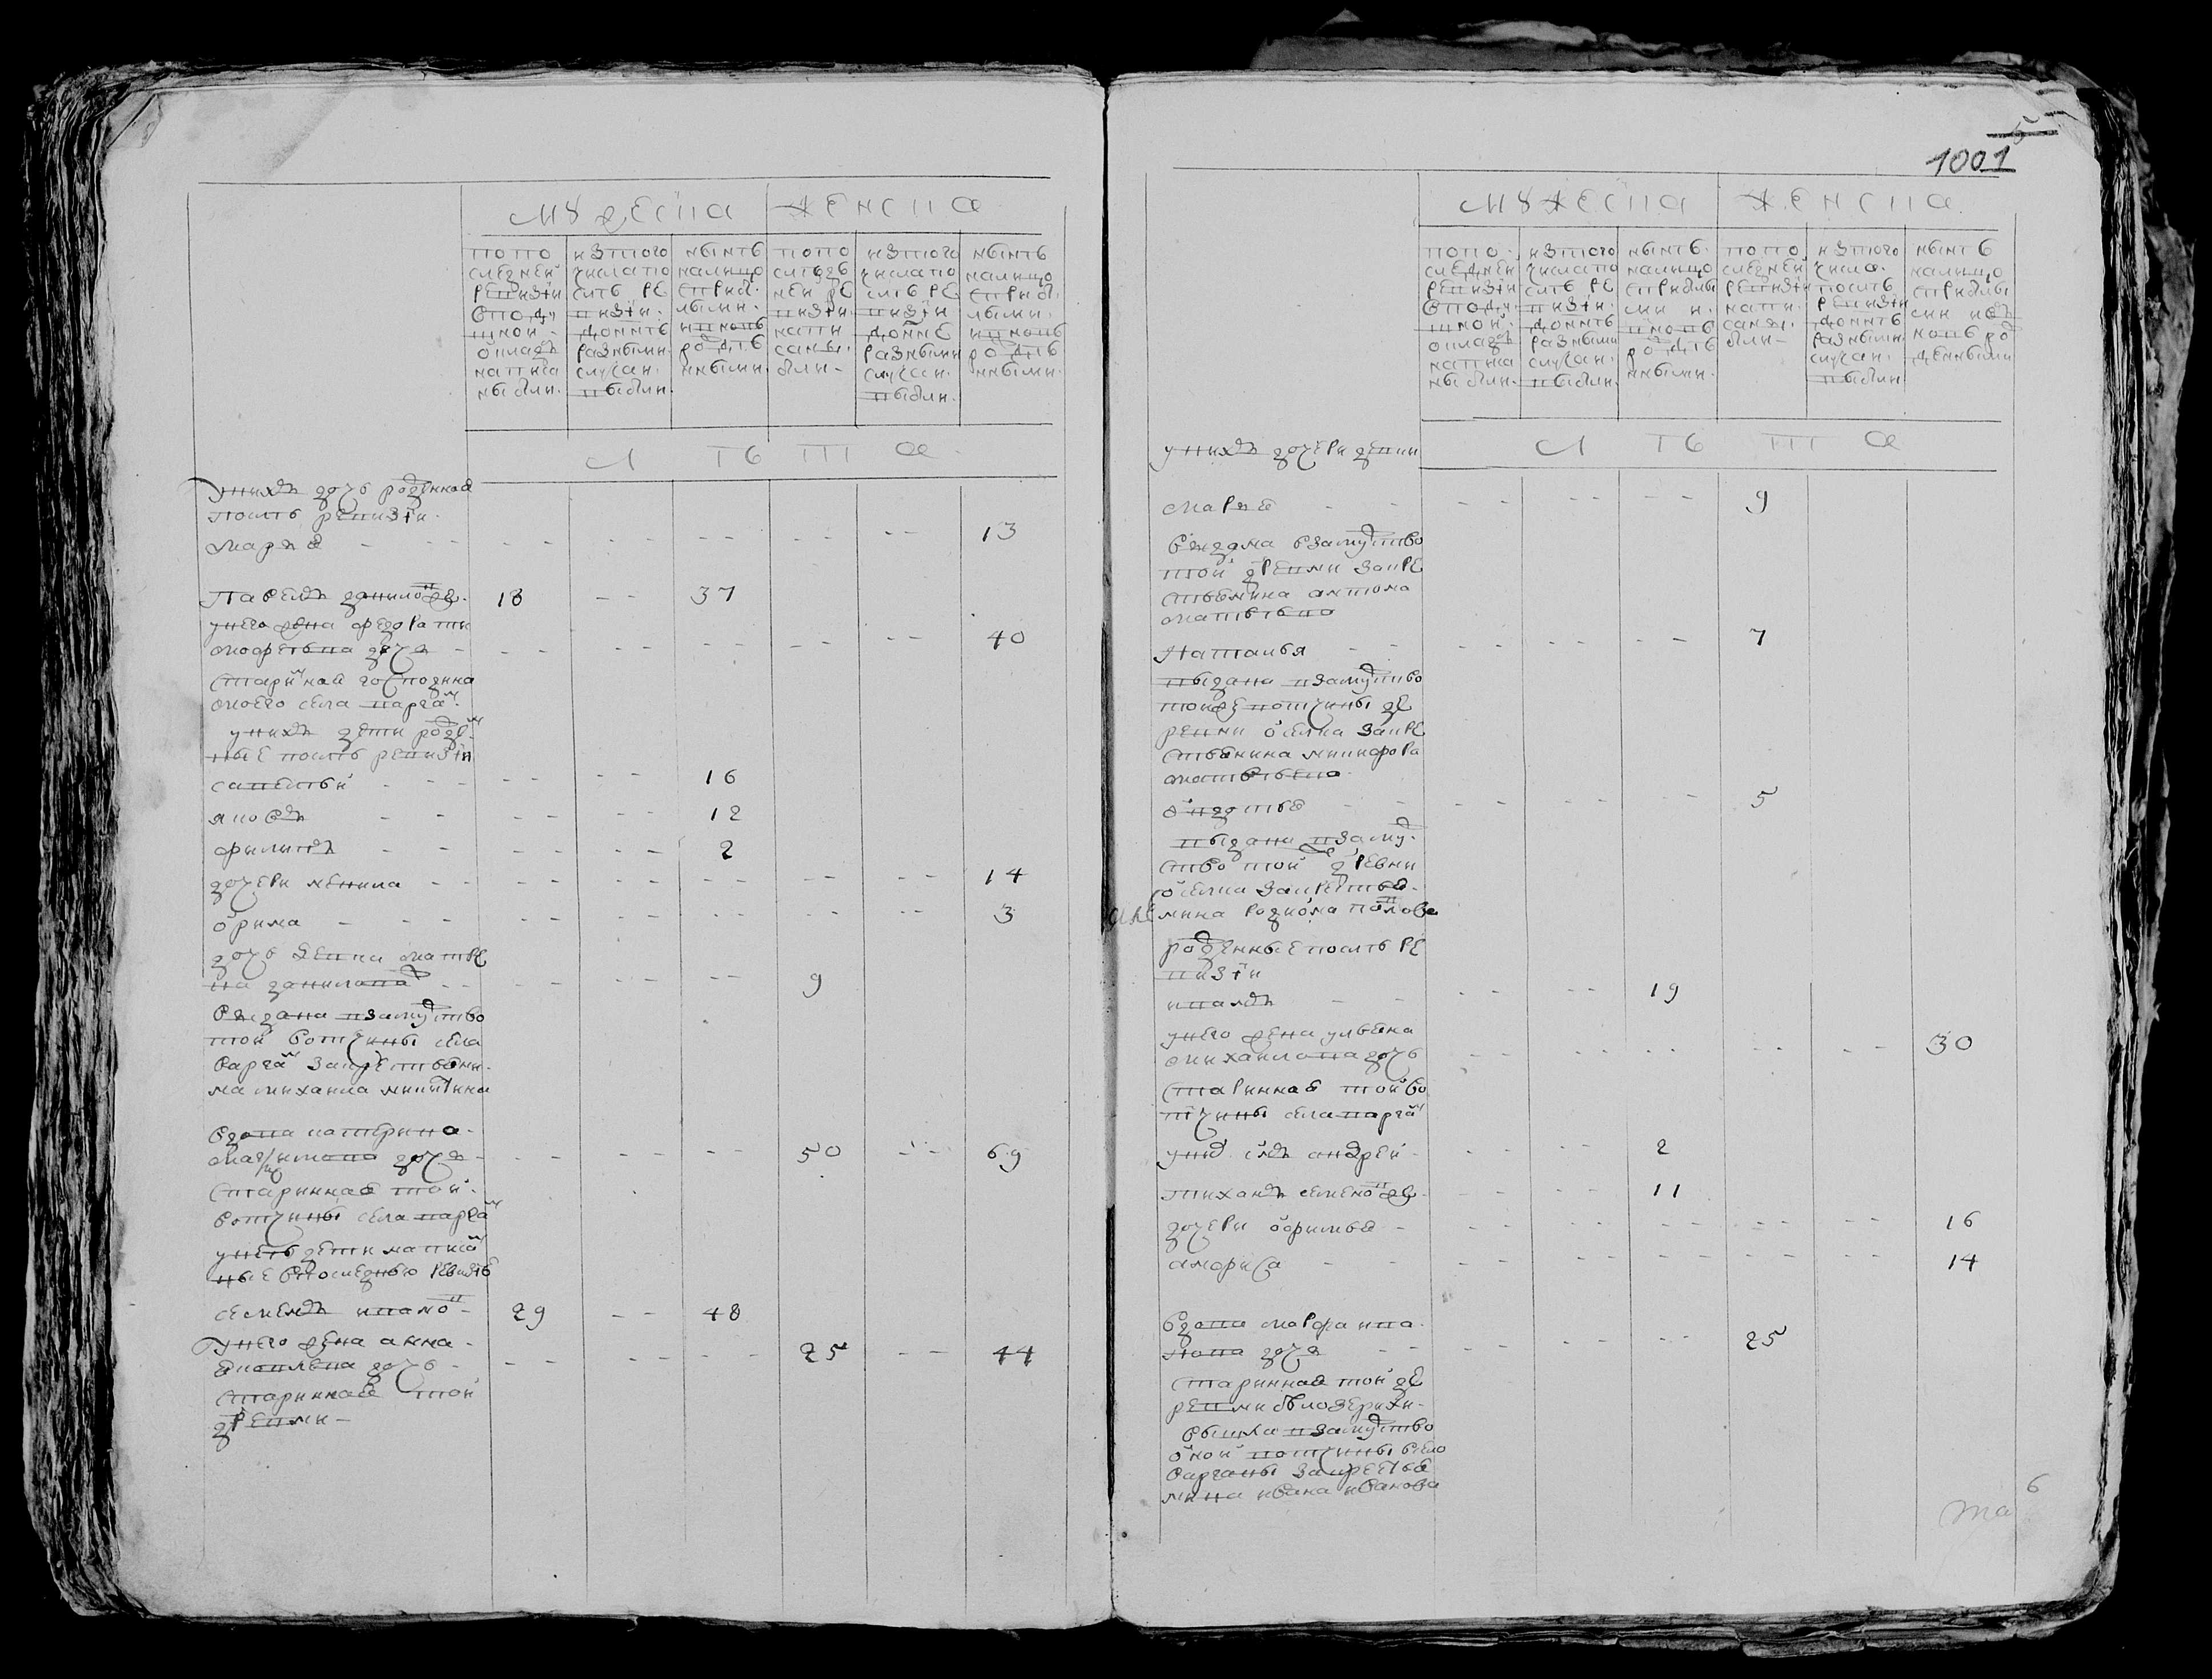 мужеска женска
по по
следней
ревизiи
в подуш
ной
окладъ
написа
ны были
из того
числа по
слѣ ре
визiи
до ннѣ
разными
случаи
выбыли
нынѣ
налицо
с прибы
лыми
и вновь
рожд
нными
по по
слѣдъ
ней ре
визiи
напи
саны
были
из того
числа по
слѣ ре
визiи
до ннѣ
разными
случаи
выбыли
нынѣ
налицо
с прибы
лыми
и вновь
рожд
нными
л ѣ т а
у нихъ дочь рожденная
послѣ ревизiи
марья 13
Павелъ данилов 18 37
у него жена федора ти
мофеевна дочь 40
старинная господина
моего села варган
у нихъ дети рожден
ные послѣ ревизiи
савелей 16
яковъ 12
филипъ 2
дочери ненила 14
офима 3
дочь девка матре
на данилова 9
выдана в замужство
той вотчины села
варган за крестьяни
на михаила никитина
вдова катерина
максимова дочь 50 69
старинная той
вотчины села варган
у неѣ дети написан
ные в последнюю ревизiю
семенъ иванов 29 48
у него жена анна
яковлевна дочь 25 44
старинная той
древни
1001
мужеска женска
по по
следней
ревизiи
в поду
шной
окладъ
написа
ны были
из того
числа по
слѣ ре
визiи
до ннѣ
разными
случаи
выбыли
нынѣ
налицо
с прибылы
ми и
вновь
рождѣ
нными
по по
следней
ревизiи
напи
саны
были
из того
числа
послѣ
ревизiи
до ннѣ
разными
случаи
выбыли
нынѣ
налицо
с прибылы
ми и въ
новь ро
жденными
у нихъ дочери девки
л ѣ т а
марья 9
выдана в замужство
той древни за кре
стьянина антона
матвѣева
Наталья 7
выдана в замужство
той же вотчины де
ревни оселка за кре
стьянина никифора
матвѣева
овдотья 5
выдана в замуж
ство той древни
оселка за крестья
нина родиона павлова
рожденные послѣ ре
визiи
иванъ 19
у него жена ульяна
михаилова дочь 30
старинная той во
тчины села варган
у них снъ андрей 2
тиханъ семенов 11
дочери офимья 16
анфиса 14
вдова марфа ива
нова дочь 25
старинная той де
ревни бѣлозерихи
вышла в замужство
оной вотчины в село
варганы за крестья
нина ивана иванова
6